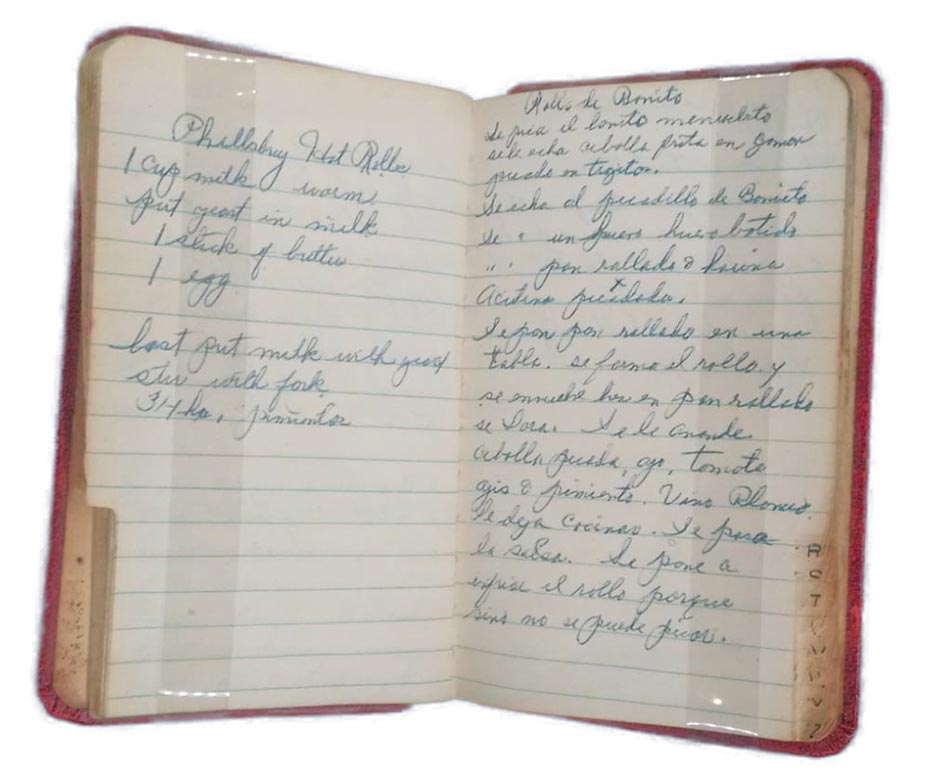 Phillsbry Hot Rolls
1 cup milk warm
put yeast in milk
1 stick of butter
1 egg
last put milk with yeast
stir with fork
3/4 ha, pimentos
Rollo de Bonito
Se pica el bonito menudito
se le echa cebolla frita en
picado en
Se echa al picadillo de Bonito
Se " un huevo batido
" " pan rallado o harina
Acituna picada.
Se pon pan rallado en una
tabla. se forma el rollo y
se envuelve bien en pan rallado
se dora. Se le anande
cebolla picada, ajo, tomate
ajis o pimiento. Vino Blanco.
Se deja cocinar. Se pasa
la salsa. Se pone a
enfriar el rollo porque
sino no se puede picar.
R
T
V